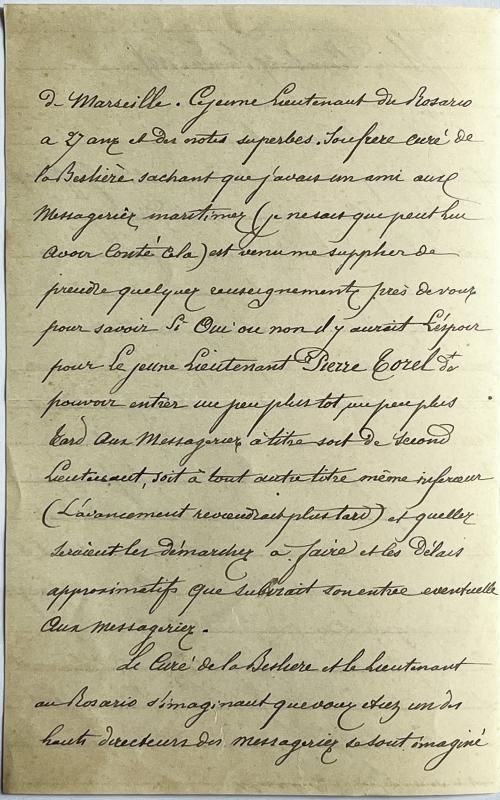 de Marseille. Ce jeune Lieutenant du Rosario
a 27 ans et des notes superbes. Son frere curé de
la Beslière sachant que j'avais un ami aux
Messageries maritimes (je ne sais que peut lui
avoir conté cela) est venu me supplier de
prendre quelques renseignements près de vous
pour savoir Si Oui ou non il y aurait l'éspoir
pour le jeune Lieutenant Pierre Torel de
pouvoir entrer un peu plus tot un peu plus
tard aux Messageries à titre soit de Second
Lieutenant, soit à tout autre titre même inferieur
(L'avancement reviendrait plus tard) et quelles
seraient les démarches à faire et les Délais
approximatifs que subirait son entrée eventuelle
aux Messageries.
Le Curé de la Besliere et le Lieutenant
au Rosario s'imaginant que vous etiez un des
hauts directeurs des Messageries se sont imaginé